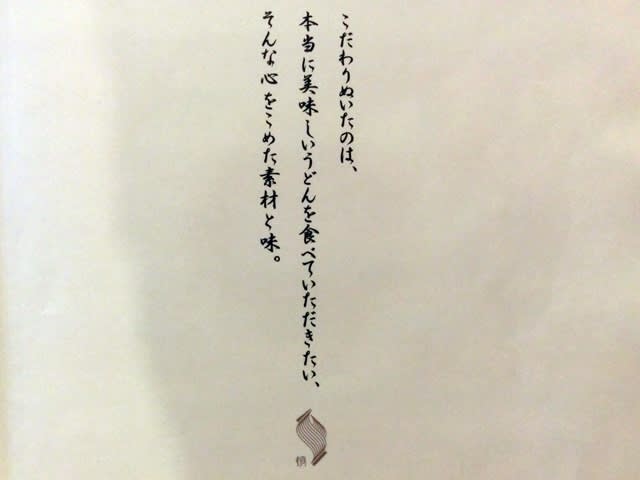 こだわりぬいたのは、
本当に美味しいうどんを食べていただきたい、
そんな心をこめた素材と味。
慎